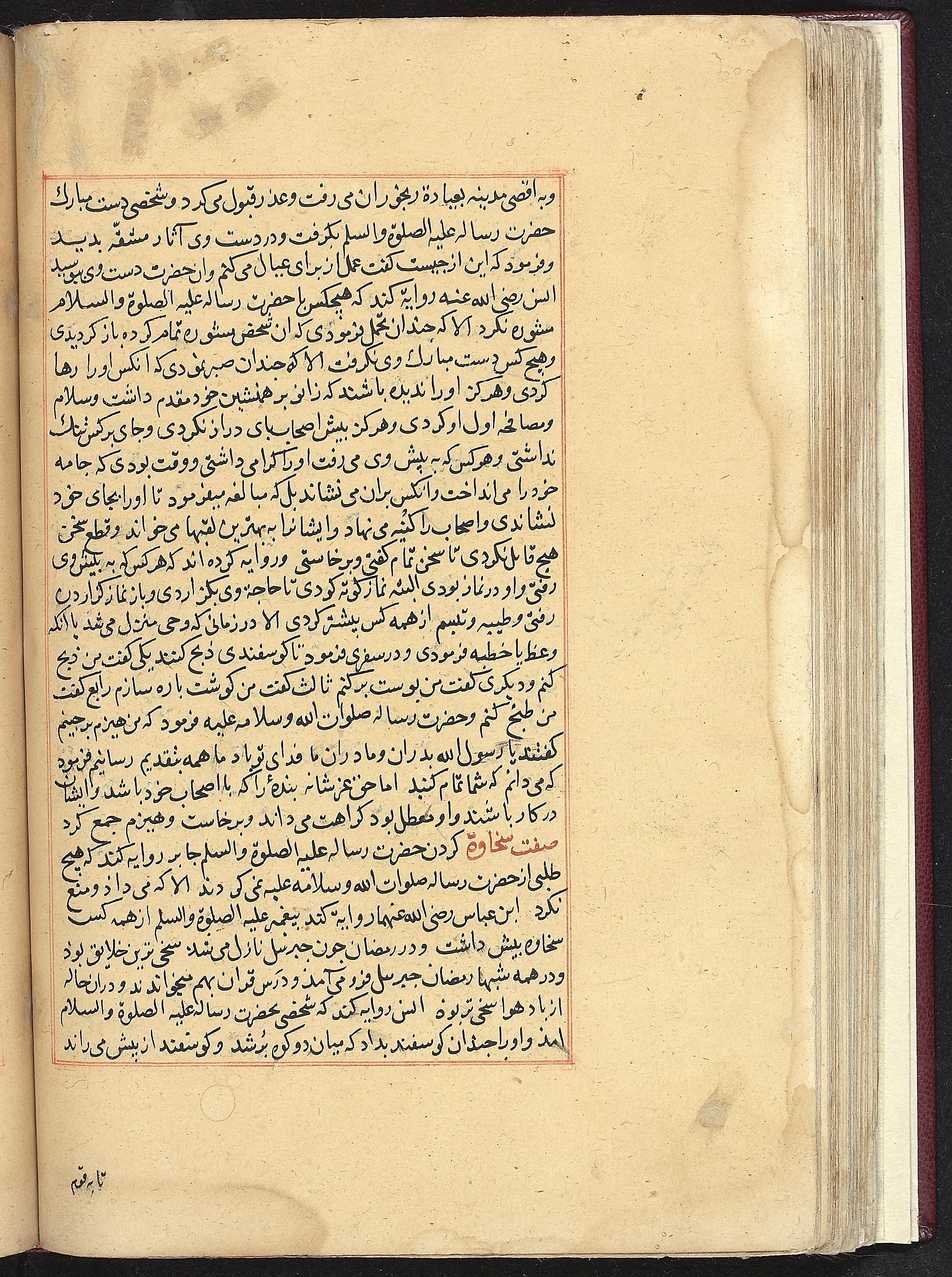 وبه اقصی مدینه بعیادة رنجوران می رفت وعذر قبول می کرد و شخصی دست مبارك
حضرت رساله علیه الصلوة والسلم بگرفت ودر دست وی آثار مشقّه بدیـد
وفرمود که این از چیست کفت عمل از برای عیال می کنم وان حضرت دست وی ببوسید
انس رضی الله عنه روایة کند که هیچکس با حضرت رساله علیه الصلوة والسـلام
مشوره نکرد الا که چندان تحمل فرمودی که ان شخص مشوره تمام کرده باز کردیدی
وهیچ کس دست مبارك وی نکرفت الا که چندان صبر نمودی که آنکس اورا رها
کردی وهرکز اورا ندیده باشند که زانو بر همنشین خود مقدم داشت وسلام
ومصافحه اول او کردی وهرکز پیش اصحاب پای دراز نکردی وجای بر کس تنك
نداشتی وهر کس که به پیش وی می رفت اورا اکرام می داشتی ووقت بودی که جامه
خود را می انداخت وانکس بران می نشاند بل که مبالغه میفرمود تا اورا بجای خود
بنشاندی واصحاب را کنیه می نهاد وایشانرا به بهترین لقبها می خواند وقطع سخن
هیچ قایل نکردی تا سخن تمام کفتی وبرخاستی وروایه کرده اند که هر کس که به پیش وی
رفتی واو در نماز بودی البته نماز کوته کردی تا حاجة وی بکزاردی وباز نماز کزاردن
رفتی وطیبه وتبسم از همه کس بیشتر کردی الا در زمانی که وحی منزل می شد یا انکه
وعظ یا خطبه فرمودی ودر سفری فرمود تا کوسفندی ذبح کنند یکی کفت من ذبح
کنم ودیکری کفت من پوست بر کنم ثالث کفت من کوشت پاره سازم رابع کفت
من طبخ کنم وحضرت رساله صلوات الله وسلامه علیه فرمود که من هیزم برچینم
کفتند یا رسول الله پدران ومادران ما فدای تو باد ما همه بتقدیم رسانیم فرمود
که می دانم که شما تمام کنید اما حق عز شانه بندۀ را که با اصحاب خود باشد وایشان
در کار باشند واو معطل بود کراهت می داند وبرخاست وهیزم جمع کرد
صفت سخاوة کردن حضرت رساله علیه الصلوة والسلم جابر روایه کند که هیچ
طلبی از حضرت رساله صلوات الله وسلامه علیه نمی کردند الا که می داد ومنع
نکرد ابن عباس رضی الله عنهما روایة کند پیغمبر علیه الصلوة والسلم از همه کس
سخاوه بیش داشت ودر رمضان چون جبرئیل نازل می شد سخی ترین خلایق بود
ودر همه شبها رمضان جبرئیل فرو می آمد ودرس قران بهم میخواندند ودران حاله
از باد هوا سخی تر بود انس روایه کند که شخصی بحضرت رساله علیه الصلوة والسلام
امد واورا چندان کوسفند بداد که میان دو کوه پر شد وکوسفند از پیش می راند
تا به قوم